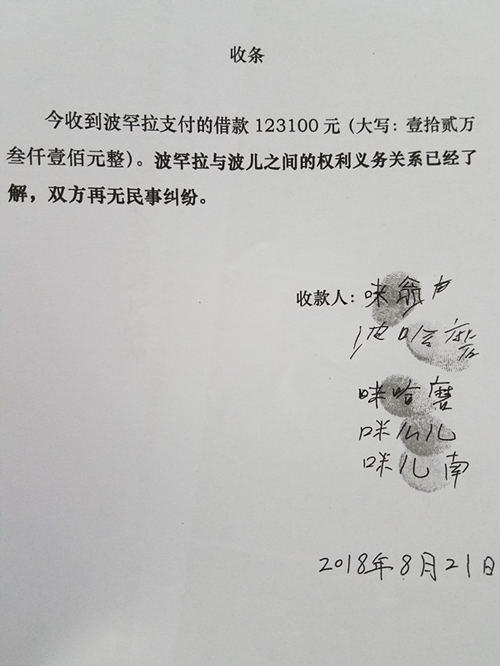 收条
今收到波罕拉支付的借款 123100 元（大写：壹拾贰万
叁仟壹佰元整）。波罕拉与波儿之间的权利义务关系已经了
解，双方再无民事纠纷。
收款人：咪翁卢
波哈磨
咪哈磨
咪儿
咪儿南
2018年8月21日